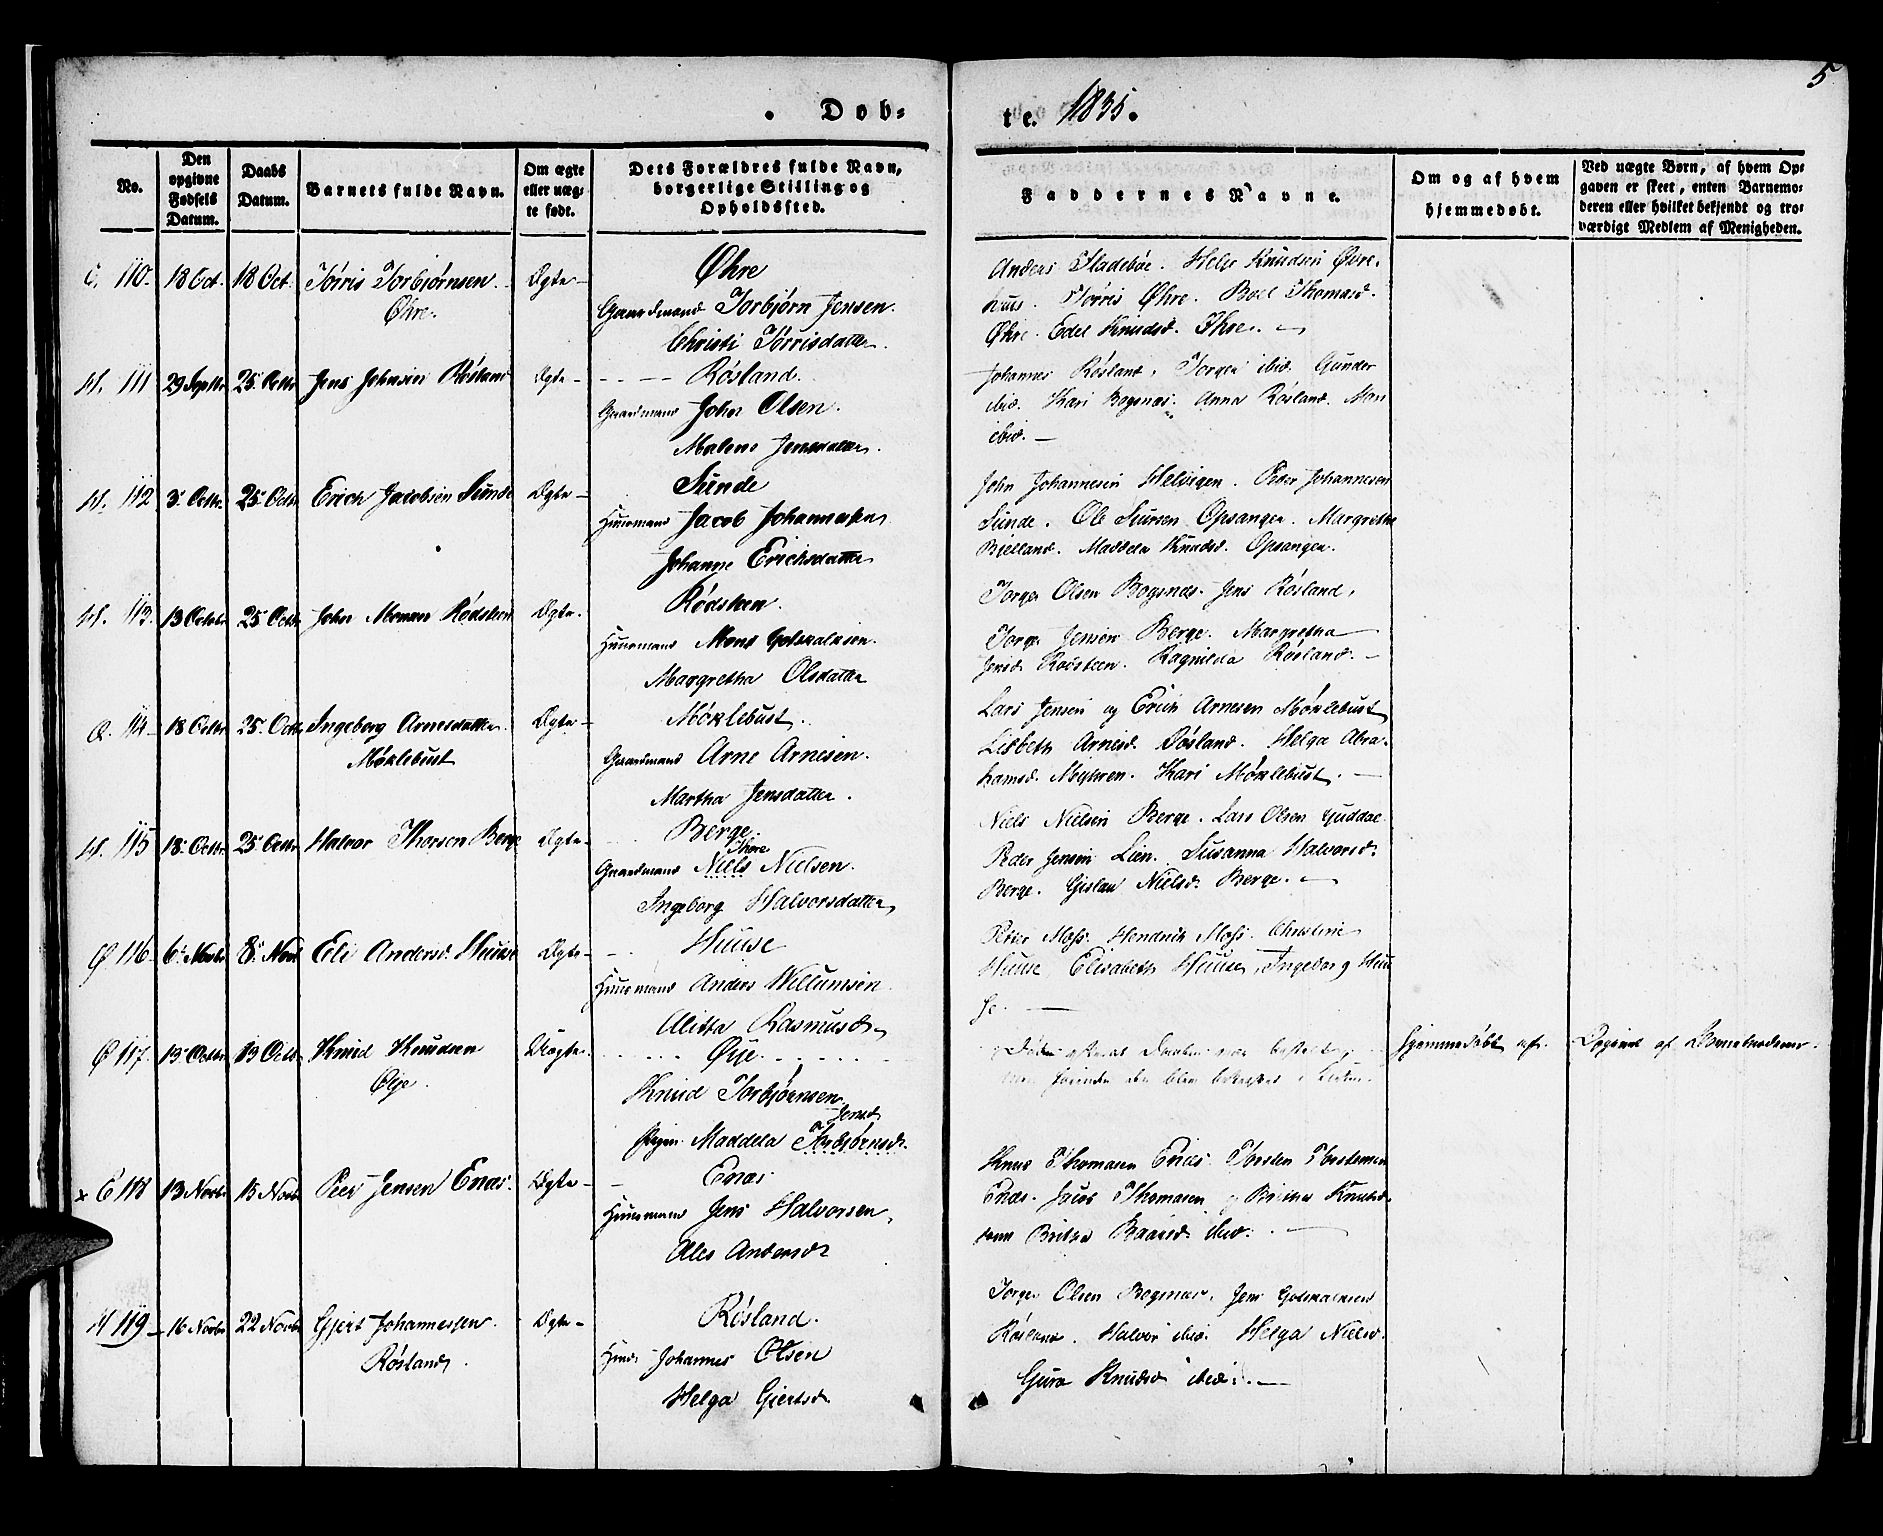 5
Døb=
te. 1835.
No.
Den opgivne Fødsels Datum.
Daabs Datum.
Barnets fulde Navn.
Om ægte eller uæg= te født.
Dets Forældres fulde Navn, borgerlige Stilling og Opholdssted.
Faddernes Navne.
Om og af hvem hjemmedøbt.
Ved uægte Børn, af hvem Op= gaven er skeet, enten Barnemo= deren eller hvilket bekjendt og tro= værdigt Medlem af Menigheden.
110. 18 Oct. 18 Oct. Tørris Torbjørnsen Ægte Øhre
Øhre. Gaardmand Torbjørn Jensen.
Christi Tørrisdatter.
Anders Fladebøe. Helje Knudsen Øhre.
huus. Tørris Øhre. Boel Thomasd.
Øhre. Edel Knudsd. Øhre.
111 29 Septbr 25 Octbr Jens Johnsen Røsland Ægte Røsland.
Gaardmand John Olsen.
Malene Jensdatter.
Johannes Røsland, Torger ibid. Gunder
ibid. Kari Bogsnæs. Anna Røsland. Mari
ibid.
112 3 Octbr. 25 Octbr Erich Jacobsen Sunde Ægte Sunde
Huusmand Jacob Johannesen
Johanne Erichsdatter
John Johannesen Helvigen. Peder Johannesen
Sunde. Ole Siursen Opsanger. Margrethe
Bielland. Maddela Knudsd. Opsanger.
113. 13 Octobr 25 Octbr John Monsen Rødsteen Ægte. Rødsteen.
Huusmand Mons Gotskalksen.
Margretha Olsdatter
Torger Olsen Bogsnæs. Jens Røsland,
Torge Jensen Berge. Margretha
Jensd. Rødsteen. Ragnilda Røsland.
114 18 Octbr 25. Octbr Ingeborg Arnesdatter Ægte Møklebust.
Møklebust Gaardmand Arne Arnesen.
Martha Jensdatter.
Lars Jensen og Erich Arnesen Møklebust
Lisbeth Arnesd. Røsland. Helga Abra=
hamsd. Myhren. Kari Møklebust.
115 18. Octbr 25 Octbr Halvor Thorsen Berge Ægte Berge.
Thore
Gaardmand Niels Nielsen.
Ingeborg Halvorsdatter
Niels Nielsen Berge. Lars Olsen Guddal
Peder Jensen Lien. Susanna Halvorsd.
Berge. Gislau Nielsd. Berge.
116 6. Novbr 8. Novb Eli Andersd. Huuse Ægte Huuse
Huusmand Anders Willumsen
Alitta Rasmusd.
Peter Moss. Hendrik Moss. Christine
Huuse Elisabeth Huuse, Ingeborg Huu
se.
117. 13 Octbr 13 Octb. Knud Knudsen Uægte. Øije
Øije. Knud Torbjørnsen
Jensd.
Pigen Maddela Torbjørnsd.
Død efter at Daaben var
men førend den blev bekræftet i Kirken.
hjemmedøbt af. Opgivet af Barnemoderen.
118 13 Novbr 15 Novbr Peer Jensen Enæs. Ægte Enæs
Huusmand Jens Halvorsen,
Ales Andersd.
Knud Thomasen Enæs. Torsten Torstensen
Enæs. Jacob Thomasen Knudsd.
Britha Baarsd. ibid.
119 16 Novbr 22 Novbr Gjert Johannessen. Ægte Røsland.
Røsland. Huusd. Johannes Olsen
Helga Giertsd.
Torger Olsen Bogsnæs. Jens Gotskalksen
Røsland. Halvor ibid. Helga Nielsd.
Guro Knudsd ibid.